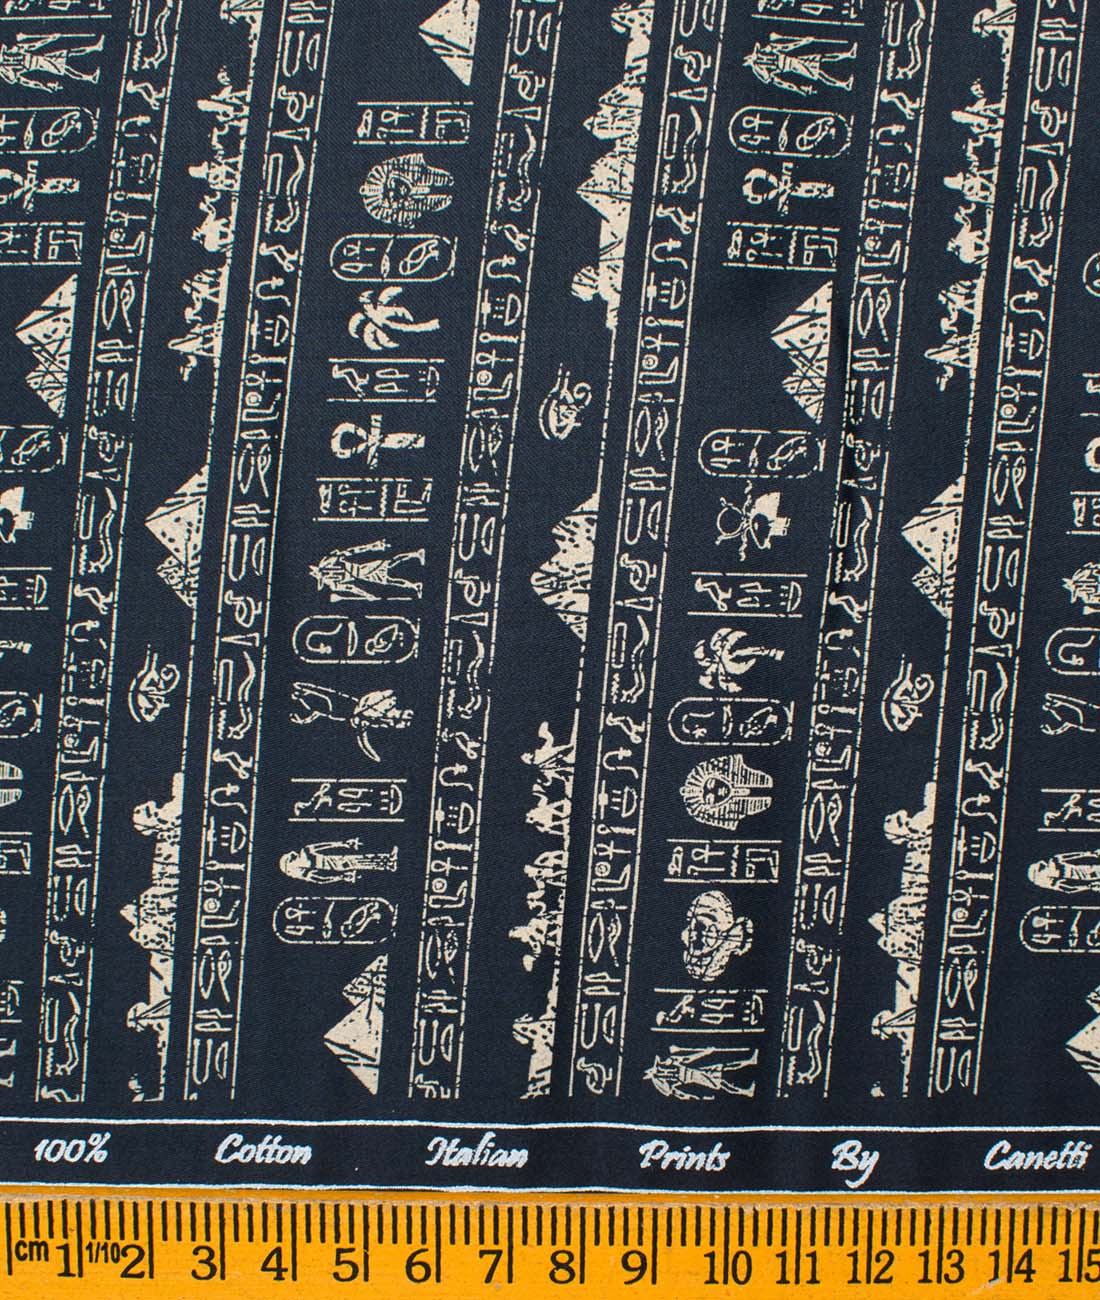 100% Cotton Italian Prints By Canetti
cm 1 1/10c 2 3 4 5 6 7 8 9 10 11 12 13 14 15